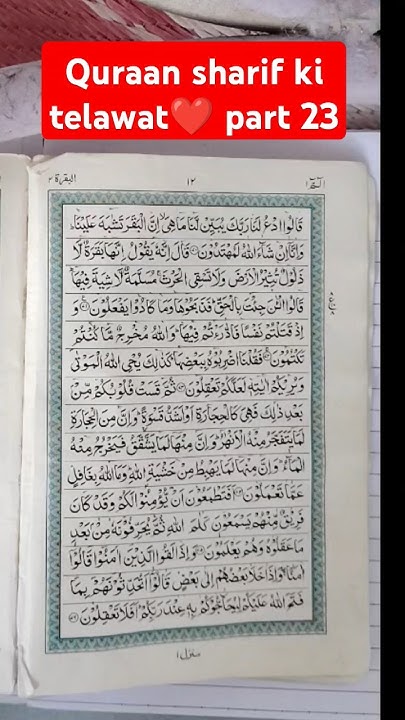 Quraan sharif ki
telawat❤️ part 23
البقرة ٢
١٢
الٓمّٓ ١
قَالُوا ادْعُ لَنَا رَبَّكَ يُبَيِّنْ لَّنَا مَا هِيَ ۙ إِنَّ الْبَقَرَ تَشٰبَهَ عَلَيْنَا ؕ
وَاِنَّآ اِنْ شَآءَ اللّٰهُ لَمُهْتَدُوْنَ ۝۷۰ قَالَ اِنَّهٗ يَقُوْلُ اِنَّهَا بَقَرَةٌ لَّا
ذَلُوْلٌ تُثِيْرُ الْاَرْضَ وَلَا تَسْقِى الْحَرْثَ ۚ مُسَلَّمَةٌ لَّا شِيَةَ فِيْهَا ؕ
قَالُوا الْـٰٔنَ جِئْتَ بِالْحَقِّ ؕ فَذَبَحُوْهَا وَمَا كَادُوْا يَفْعَلُوْنَ ۝۷۱ وَ
اِذْ قَتَلْتُمْ نَفْسًا فَادّٰرَءْتُمْ فِيْهَا ؕ وَاللّٰهُ مُخْرِجٌ مَّا كُنْتُمْ
تَكْتُمُوْنَ ۝۷۲ فَقُلْنَا اضْرِبُوْهُ بِبَعْضِهَا ؕ كَذٰلِكَ يُحْىِ اللّٰهُ الْمَوْتٰى ۙ
وَيُرِيْكُمْ اٰيٰتِهٖ لَعَلَّكُمْ تَعْقِلُوْنَ ۝۷۳ ثُمَّ قَسَتْ قُلُوْبُكُمْ مِّنْۢ
بَعْدِ ذٰلِكَ فَهِىَ كَالْحِجَارَةِ اَوْ اَشَدُّ قَسْوَةً ؕ وَاِنَّ مِنَ الْحِجَارَةِ
لَمَا يَتَفَجَّرُ مِنْهُ الْاَنْهٰرُ ؕ وَاِنَّ مِنْهَا لَمَا يَشَّقَّقُ فَيَخْرُجُ مِنْهُ
الْمَآءُ ؕ وَاِنَّ مِنْهَا لَمَا يَهْبِطُ مِنْ خَشْيَةِ اللّٰهِ ؕ وَمَا اللّٰهُ بِغَافِلٍ
عَمَّا تَعْمَلُوْنَ ۝۷۴ اَفَتَطْمَعُوْنَ اَنْ يُّؤْمِنُوْا لَكُمْ وَقَدْ كَانَ
فَرِيْقٌ مِّنْهُمْ يَسْمَعُوْنَ كَلٰمَ اللّٰهِ ثُمَّ يُحَرِّفُوْنَهٗ مِنْۢ بَعْدِ
مَا عَقَلُوْهُ وَهُمْ يَعْلَمُوْنَ ۝۷۵ وَاِذَا لَقُوا الَّذِيْنَ اٰمَنُوْا قَالُوْٓا
اٰمَنَّا ۖۚ وَاِذَا خَلَا بَعْضُهُمْ اِلٰى بَعْضٍ قَالُوْٓا اَتُحَدِّثُوْنَهُمْ بِمَا
فَتَحَ اللّٰهُ عَلَيْكُمْ لِيُحَآجُّوْكُمْ بِهٖ عِنْدَ رَبِّكُمْ ؕ اَفَلَا تَعْقِلُوْنَ ۝۷۶
منزل ١